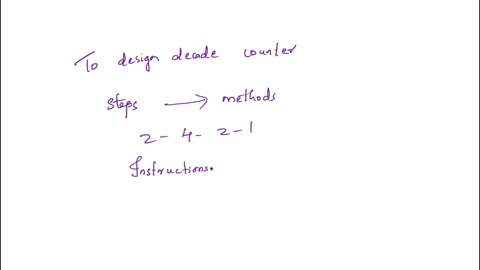 To design decade counter
Steps → methods
2 - 4 - 2 - 1
Instructions.